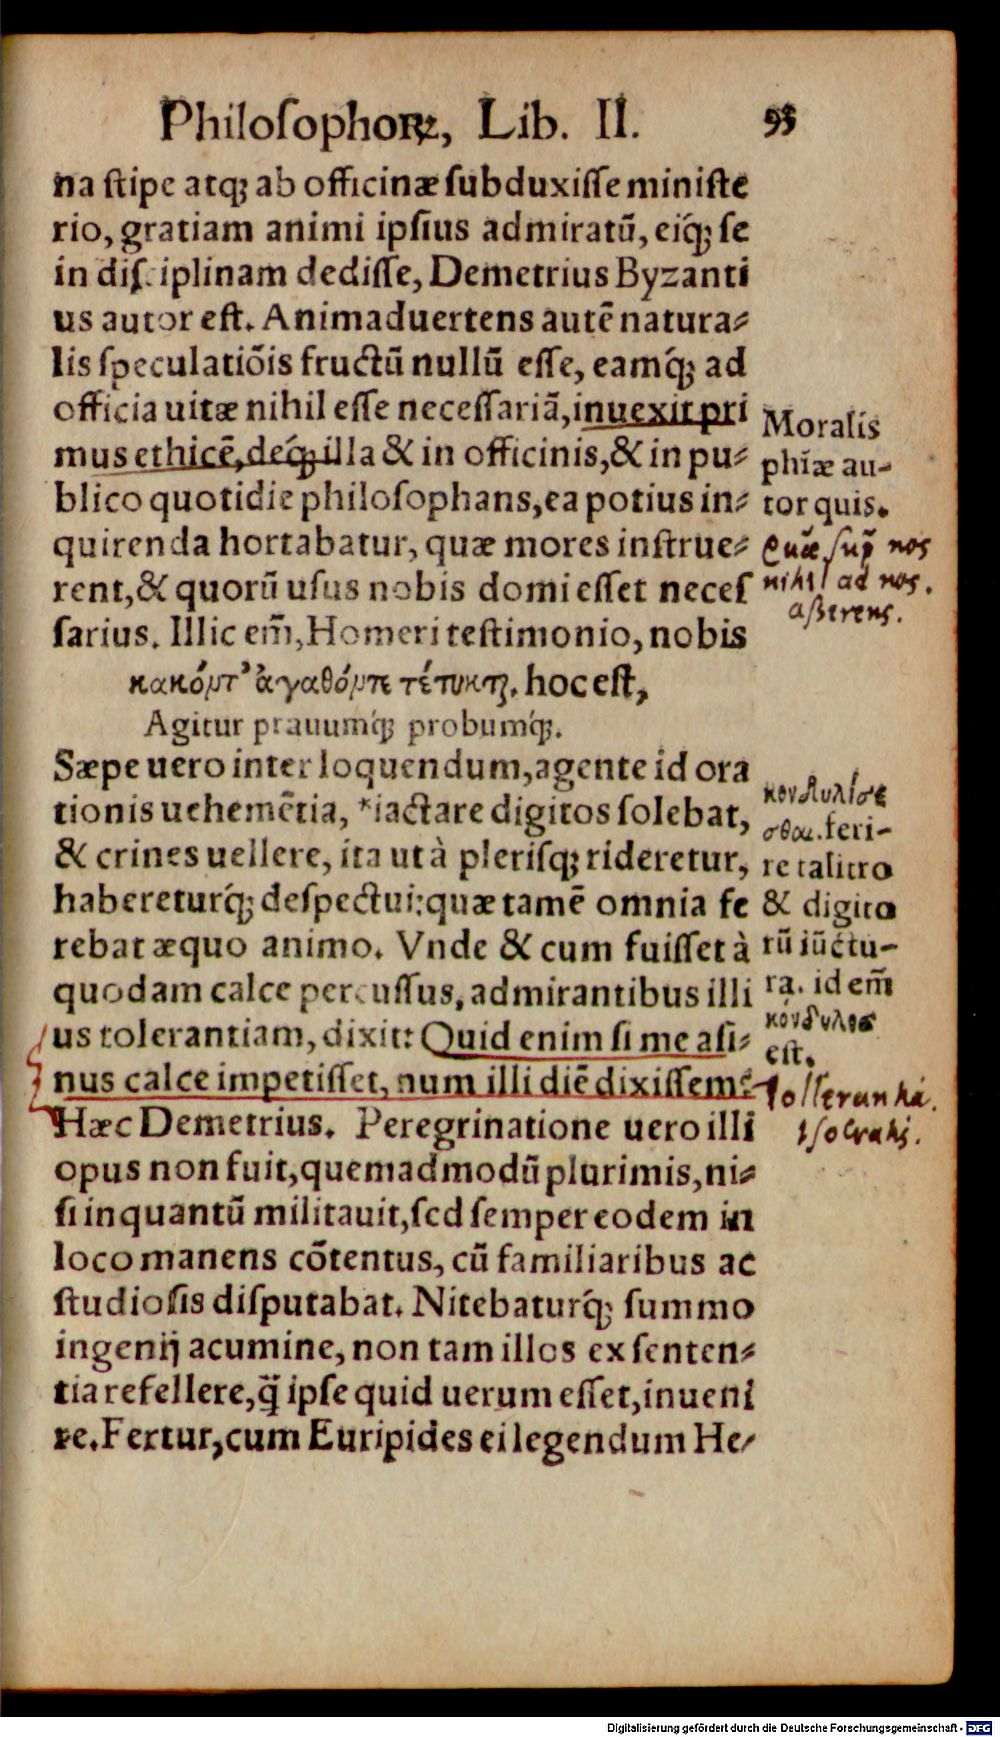 Philoſophoꝝ, Lib. II. 95
na ſtipe atq; ab officinæ ſubduxiſſe miniſte
rio, gratiam animi ipſius admiratũ, eiq́; ſe
in diſciplinam dediſſe, Demetrius Byzanti
us autor eſt. Animaduertens autẽ natura-
lis ſpeculatiõis fructũ nullũ eſſe, eamq́; ad
officia uitæ nihil eſſe neceſſariã, inuexit pri
mus ethicẽ, deq́; illa & in officinis, & in pu-
blico quotidie philoſophans, ea potius in-
quirenda hortabatur, quæ mores inſtrue-
rent, & quorũ uſus nobis domi eſſet neceſ
ſarius. Illic em̃, Homeri teſtimonio, nobis
κακόμτ' ἀγαθόμτε τέτυκτȝ. hoc eſt,
Agitur prauumq́; probumq́;.
Sæpe uero inter loquendum, agente id ora
tionis uehemẽtia, *iactare digitos ſolebat,
& crines uellere, ita ut à pleriſq; rideretur,
habereturq́; deſpectui: quæ tamẽ omnia fe
rebat æquo animo. Vnde & cum fuiſſet à
quodam calce percuſſus, admirantibus illi
us tolerantiam, dixit: Quid enim ſi me aſi-
nus calce impetiſſet, num illi diẽ dixiſſem?
Hæc Demetrius. Peregrinatione uero illi
opus non fuit, quemadmodũ plurimis, ni-
ſi inquantũ militauit, ſed ſemper eodem in
loco manens cõtentus, cũ familiaribus ac
ſtudioſis diſputabat. Nitebaturq́; ſummo
ingenij acumine, non tam illos ex ſenten-
tia refellere, q̃ ipſe quid uerum eſſet, inueni
re. Fertur, cum Euripides ei legendum He-
Moralis
phiæ au-
tor quis.
Quæ ſup̃ nos
nihil ad nos.
aſserens.
κονδυλίζε
σθαι. feri-
re talitro
& digito
rũ iũctu-
ra. id em̃
κόνδυλος
eſt.
Socratis.
Digitalisierung gefördert durch die Deutsche Forschungsgemeinschaft - DFG